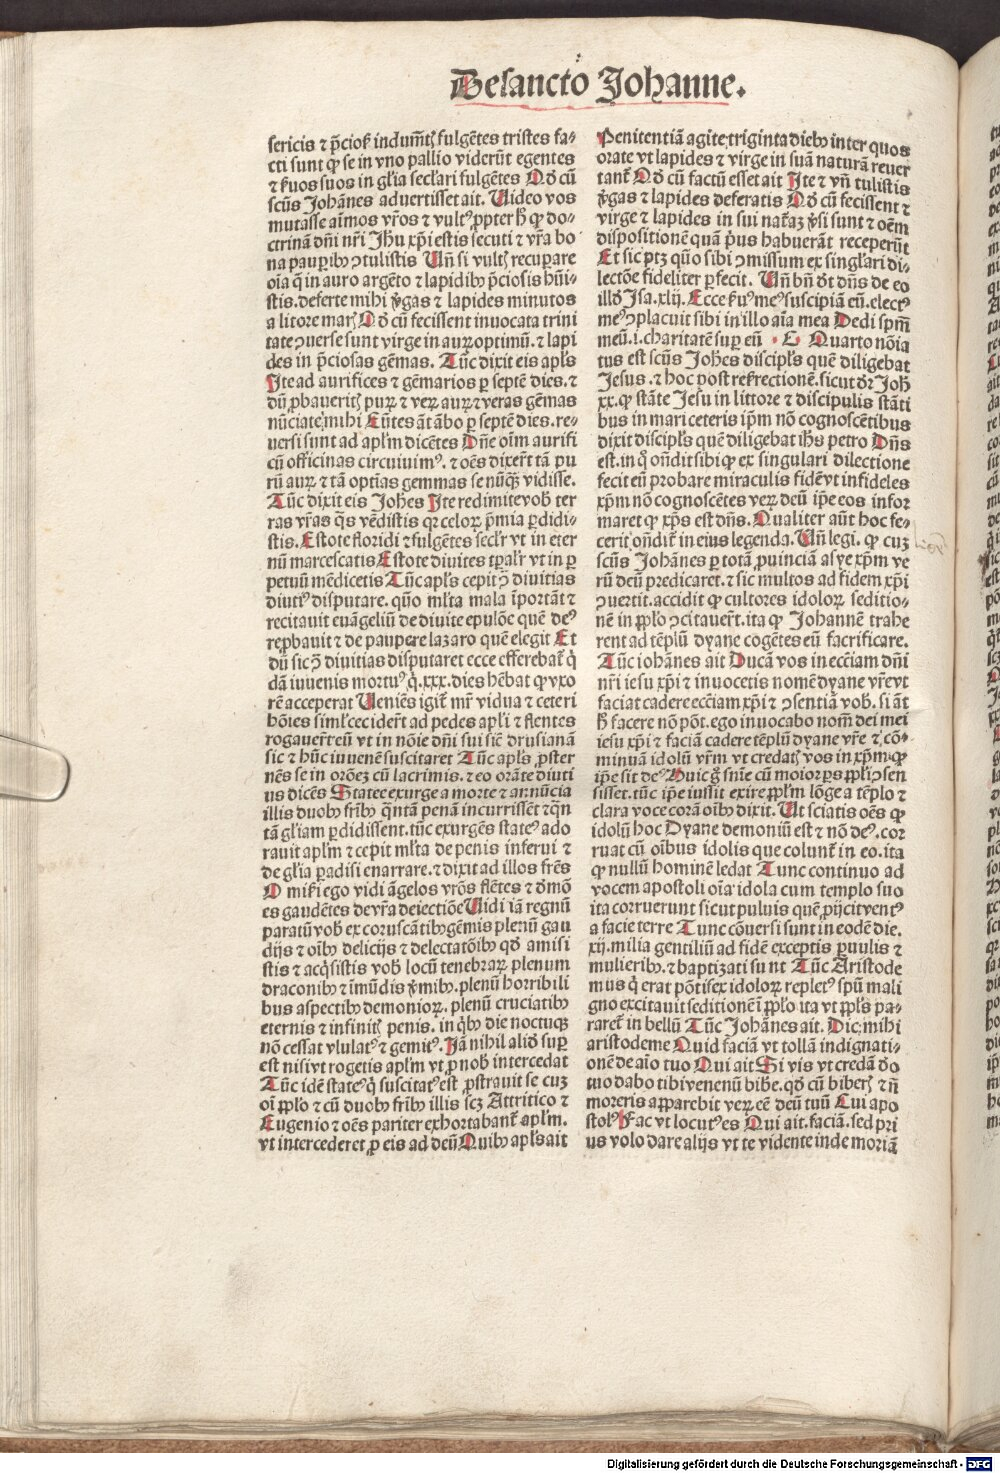 De sancto Johanne.
sericis ⁊ p̄ciosꝭ indum̄tꝭ fulgētes tristes fa⸗
cti sunt qꝛ se in vno pallio viderūt egentes
⁊ ẜuos suos in gl̄ia secl̓ari fulgētes Qd̓ cū
scūs Johānes aduertisset ait. Uideo vos
mutasse aīmos vr̄os ⁊ vultꝰ ꝓpter h̓ ꝙ do⸗
ctrinā dn̄i nr̄i Jhū xp̄i estis secuti ⁊ vr̄a bo
na pauꝑibꝫ ꝯtulistis Un̄ si vultꝭ recuꝑare
oīa q̄ in auro argēto ⁊ lapidibꝫ p̄ciosis hūi⸗
stis. deferte mihi v̓gas ⁊ lapides minutos
a litore marꝭ Qd̓ cū fecissent inuocata trini
tate ꝯuerse sunt virge in auꝝ optimū. ⁊ lapi
des in p̄ciosas gēmas. Tūc dixit eis apl̓s
Jte ad aurifices ⁊ gēmarios ꝑ septē dies. ⁊
dū ꝓbaueritꝭ puꝝ ⁊ veꝝ auꝝ ⁊ veras gēmas
nūciate mihi Eūtes āt ābo ꝑ septē dies. re⸗
uersi sunt ad apl̓m dicētes Dn̄e oīm aurifi
cū officinas circuiuimꝰ. ⁊ oēs dixer̄t tā pu
rū auꝝ ⁊ tā optīas gemmas se nūꝙ̄ vidisse.
Tūc dixit eis Joh̄es Jte redimite vob̓ ter
ras vr̄as q̄s vēdistis qꝛ celoꝝ p̄mia ꝑdidi⸗
stis. Estote floridi ⁊ fulgētes secl̓r vt in eter
nū marcescatis Estote diuites tꝑal̓r vt in ꝑ
petuū mēdicetis Tūc apl̓s cepit ꝯ̄ diuitias
diutiꝰ disputare. quō ml̓ta mala īportāt ⁊
recitauit euāgeliū de diuite epulōe quē deꝰ
reꝓbauit ⁊ de paupere lazaro quē elegit Et
dū sic ꝯ̄ diuitias disputaret ecce efferebat̄ q̇
dā iuuenis mortuꝰ q̇. xxx. dies hēbat ꝙ vxo
rē acceperat Ueniēs igit̄ mr̄ vidua ⁊ ceteri
hōies simil̓ cecider̄t ad pedes apl̓i ⁊ flentes
rogauer̄t eū vt in nōie dn̄i sui sic̄ drusianā
sic ⁊ hūc iuuenē suscitaret Tūc apl̓s ꝓster
nēs se in orōeꝫ cū lacrimis. ⁊ eo orāte diuti
us dicēs Statee exurge a morte ⁊ annūcia
illis duobꝫ fr̄ibꝫ q̄ntā penā incurrissēt ⁊ q̄n
tā gl̄iam ꝑdidissent. tūc exurgēs stateꝰ ado
rauit apl̓m ⁊ cepit ml̓ta de penis inferni ⁊
de gl̄ia ꝑadisi enarrare. ⁊ dixit ad illos frēs
O miẜi ego vidi āgelos vr̄os flētes ⁊ d̓mō
es gaudētes de vr̄a deiectiōe Uidi iā regnū
paratū vob̓ ex coruscātibꝫ gēmis plenū gau
dijs ⁊ oībꝫ delicijs ⁊ delectatōibꝫ qd̓ amisi
stis ⁊ acq̇sistis vob̓ locū tenebraꝝ plenum
draconibꝫ ⁊ īmūdis v̓mibꝫ. plenū horribili
bus aspectibꝫ demonioꝝ. plenū cruciatibꝫ
eternis ⁊ infinitꝭ penis. in q̇bꝫ die noctuqꝫ
nō cessat vlulatꝰ ⁊ gemitꝰ. Jā nihil aliđ suꝑ
est nisi vt rogetis apl̓m vt ꝓ nob̓ intercedat
Tūc idē stateꝰ q̇ suscitatꝰ est ꝓstrauit se cuꝫ
oī ꝓplo ⁊ cū duobꝫ fr̄ibꝫ illis scꝫ Attritico ⁊
Eugenio ⁊ oēs pariter exhortabant̄ apl̓m.
vt intercederet ꝓ eis ad deū Quibꝫ apl̓s ait
Penitentiā agite. triginta diebꝫ inter quos
orate vt lapides ⁊ virge in suā naturā reuer
tant̄ Qd̓ cū factū esset ait Jte ⁊ vn̄ tulistis
v̓gas ⁊ lapides deferatis Qd̓ cū fecissent ⁊
virge ⁊ lapides in sui nat̄aꝫ v̓si sunt ⁊ oēm
dispositionē quā p̓us habuerāt receperūt
Et sic ptꝫ quō sibi ꝯmissum ex singl̓ari di⸗
lectōe fideliter ꝑfecit. Un̄ bn̄ d̓t dn̄s de eo
illd̓ Jsa. xlij. Ecce ẜuꝰ meꝰ suscipiā eū. electꝰ
meꝰ ꝯplacuit sibi in illo aīa mea Dedi spm̄
meū. i. charitatē suꝑ eū · E Quarto nōia
tus est scūs Joh̄es discipl̓s quē diligebat
Jesus. ⁊ hoc post resr̄rectionē. sicut d̓r Joh̓
xx. ꝙ stāte Jesu in littore ⁊ discipulis stāti
bus in mari ceteris ip̄m nō cognoscētibus
dixit discipl̓s quē diligebat ih̄s petro Dn̄s
est. in q̊ on̄dit sibi ꝙ ex singulari dilectione
fecit eū probare miraculis fidēvt infideles
xp̄m nō cognoscētes veꝝ deū ip̄e eos infor
maret ꝙ xp̄s est dn̄s. Qualiter aūt hoc fe⸗
cerit on̄dit̄ in eius legenda. Un̄ legi. ꝙ cuꝫ
scūs Johānes ꝑ totā ꝓuinciā asye xp̄m ve
rū deū predicaret. ⁊ sic multos ad fidem xp̄i
ꝯuertit. accidit ꝙ cultores idoloꝝ seditio⸗
nē in ꝓplo ꝯcitauer̄t. ita ꝙ Johannē trahe
rent ad tēplū dyane cogētes eū sacrificare.
Tūc iohānes ait Ducā vos in ecc̄iam dn̄i
nr̄i iesu xp̄i ⁊ inuocetis nomē dyane vr̄e vt
faciat cadere ecc̄iam xp̄i ⁊ ꝯsentiā vob̓. si āt
h̓ facere nō pōt. ego inuocabo nom̄ dei mei
iesu xp̄i ⁊ faciā cadere tēplū dyane vr̄e ⁊ cō⸗
minuā idolū vr̄m vt credatꝭ vos in xp̄m. ꝙ
ip̄e sit deꝰ Huic g̊ snīe cū maior ꝑs ꝓpl̓i ꝯsen
sisset. tūc ip̄e iussit exire ꝓpl̓m lōge a tēplo ⁊
clara voce corā oībꝫ dixit. Ut sciatis oēs ꝙ
idolū hoc Dyane demoniū est ⁊ nō deꝰ. cor
ruat cū oībus idolis que colunt̄ in eo. ita
ꝙ nullū hominē ledat Tunc continuo ad
vocem apostoli oīa idola cum templo suo
ita corruerunt sicut puluis quē ꝓijcit ventꝰ
a facie terre Tunc cōuersi sunt in eodē die.
xij. milia gentiliū ad fidē exceptis ꝑuulis ⁊
mulieribꝫ. ⁊ baptizati sunt Tūc Aristode
mus q̇ erat pōtifex idoloꝝ repletꝰ spū mali
gno excitauit seditionē ī ꝓplo ita vt ꝓpl̓s pa⸗
raret̄ in bellū Tūc Johānes ait. Dic mihi
aristodeme Quid faciā vt tollā indignati⸗
onē de aīo tuo Qui ait Si vis vt credā d̓o
tuo dabo tibi venenū bibe. qd̓ cū biberꝭ ⁊ n̄
moreris apparebit veꝝ eē deū tuū Cui apo
stolꝰ Fac vt locutꝰ es Qui ait. faciā. sed pri
us volo dare alijs vt te vidente inde moriā
Digitalisierung gefördert durch die Deutsche Forschungsgemeinschaft -
DFG